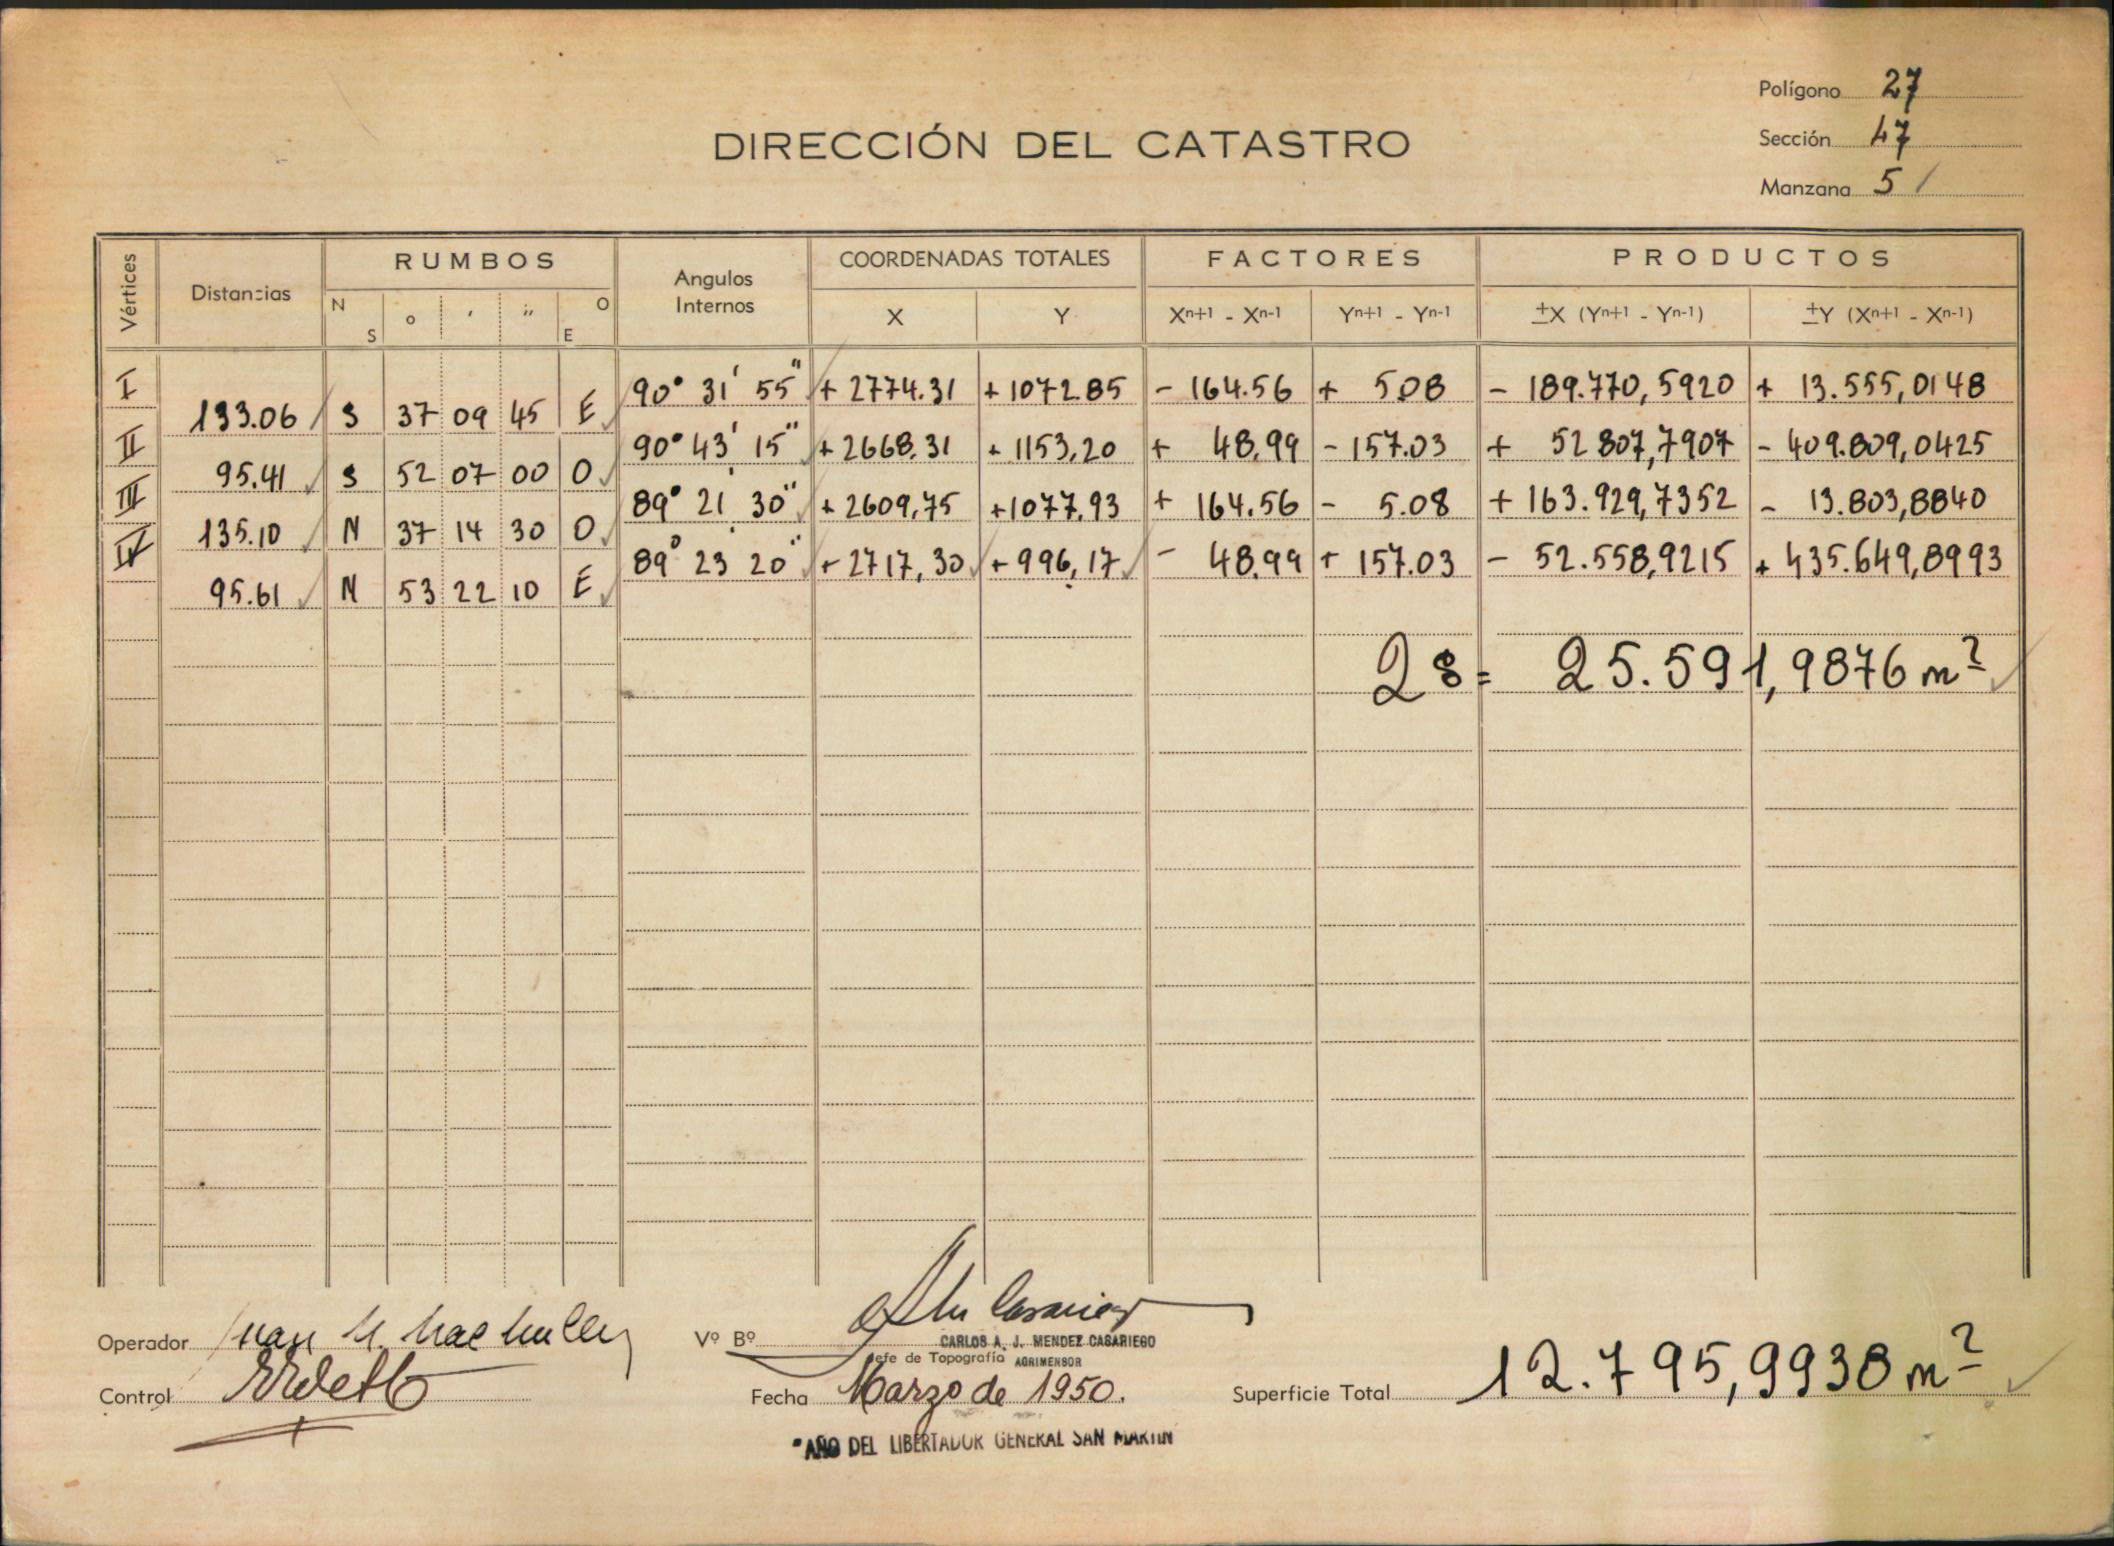 Polígono 27
DIRECCIÓN DEL CATASTRO
Sección 47
Manzana 5 /
Vértices Distancias RUMBOS Angulos Internos COORDENADAS TOTALES FACTORES PRODUCTOS
N S o ′ ″ O E X Y Xn+1 - Xn-1 Yn+1 - Yn-1 ±X (Yn+1 - Yn-1) ±Y (Xn+1 - Xn-1)
I 90° 31' 55" + 2774.31 + 1072.85 - 164.56 + 5.08 - 189.770,5920 + 13.555,0148
133.06 S 37 09 45 E
II 90° 43' 15" + 2668,31 + 1153,20 + 48,99 - 157.03 + 52 807,7907 - 409.809,0425
95.41 S 52 07 00 O
III 89° 21' 30" + 2609,75 + 1077,93 + 164.56 - 5.08 + 163.929,7352 - 13.803,8840
135.10 N 37 14 30 O
IV 89° 23' 20" + 2717,30 + 996,17 - 48,99 + 157.03 - 52.558,9215 + 435.649,8993
95.61 N 53 22 10 E
2s = 25.591,9876 m²
Operador Juan
Vº Bº
CARLOS A. J. MENDEZ CASARIEGO
Jefe de Topografía AGRIMENSOR
Control
Fecha Marzo de 1950.
Superficie Total 12.795,9938 m²
"AÑO DEL LIBERTADOR GENERAL SAN MARTIN